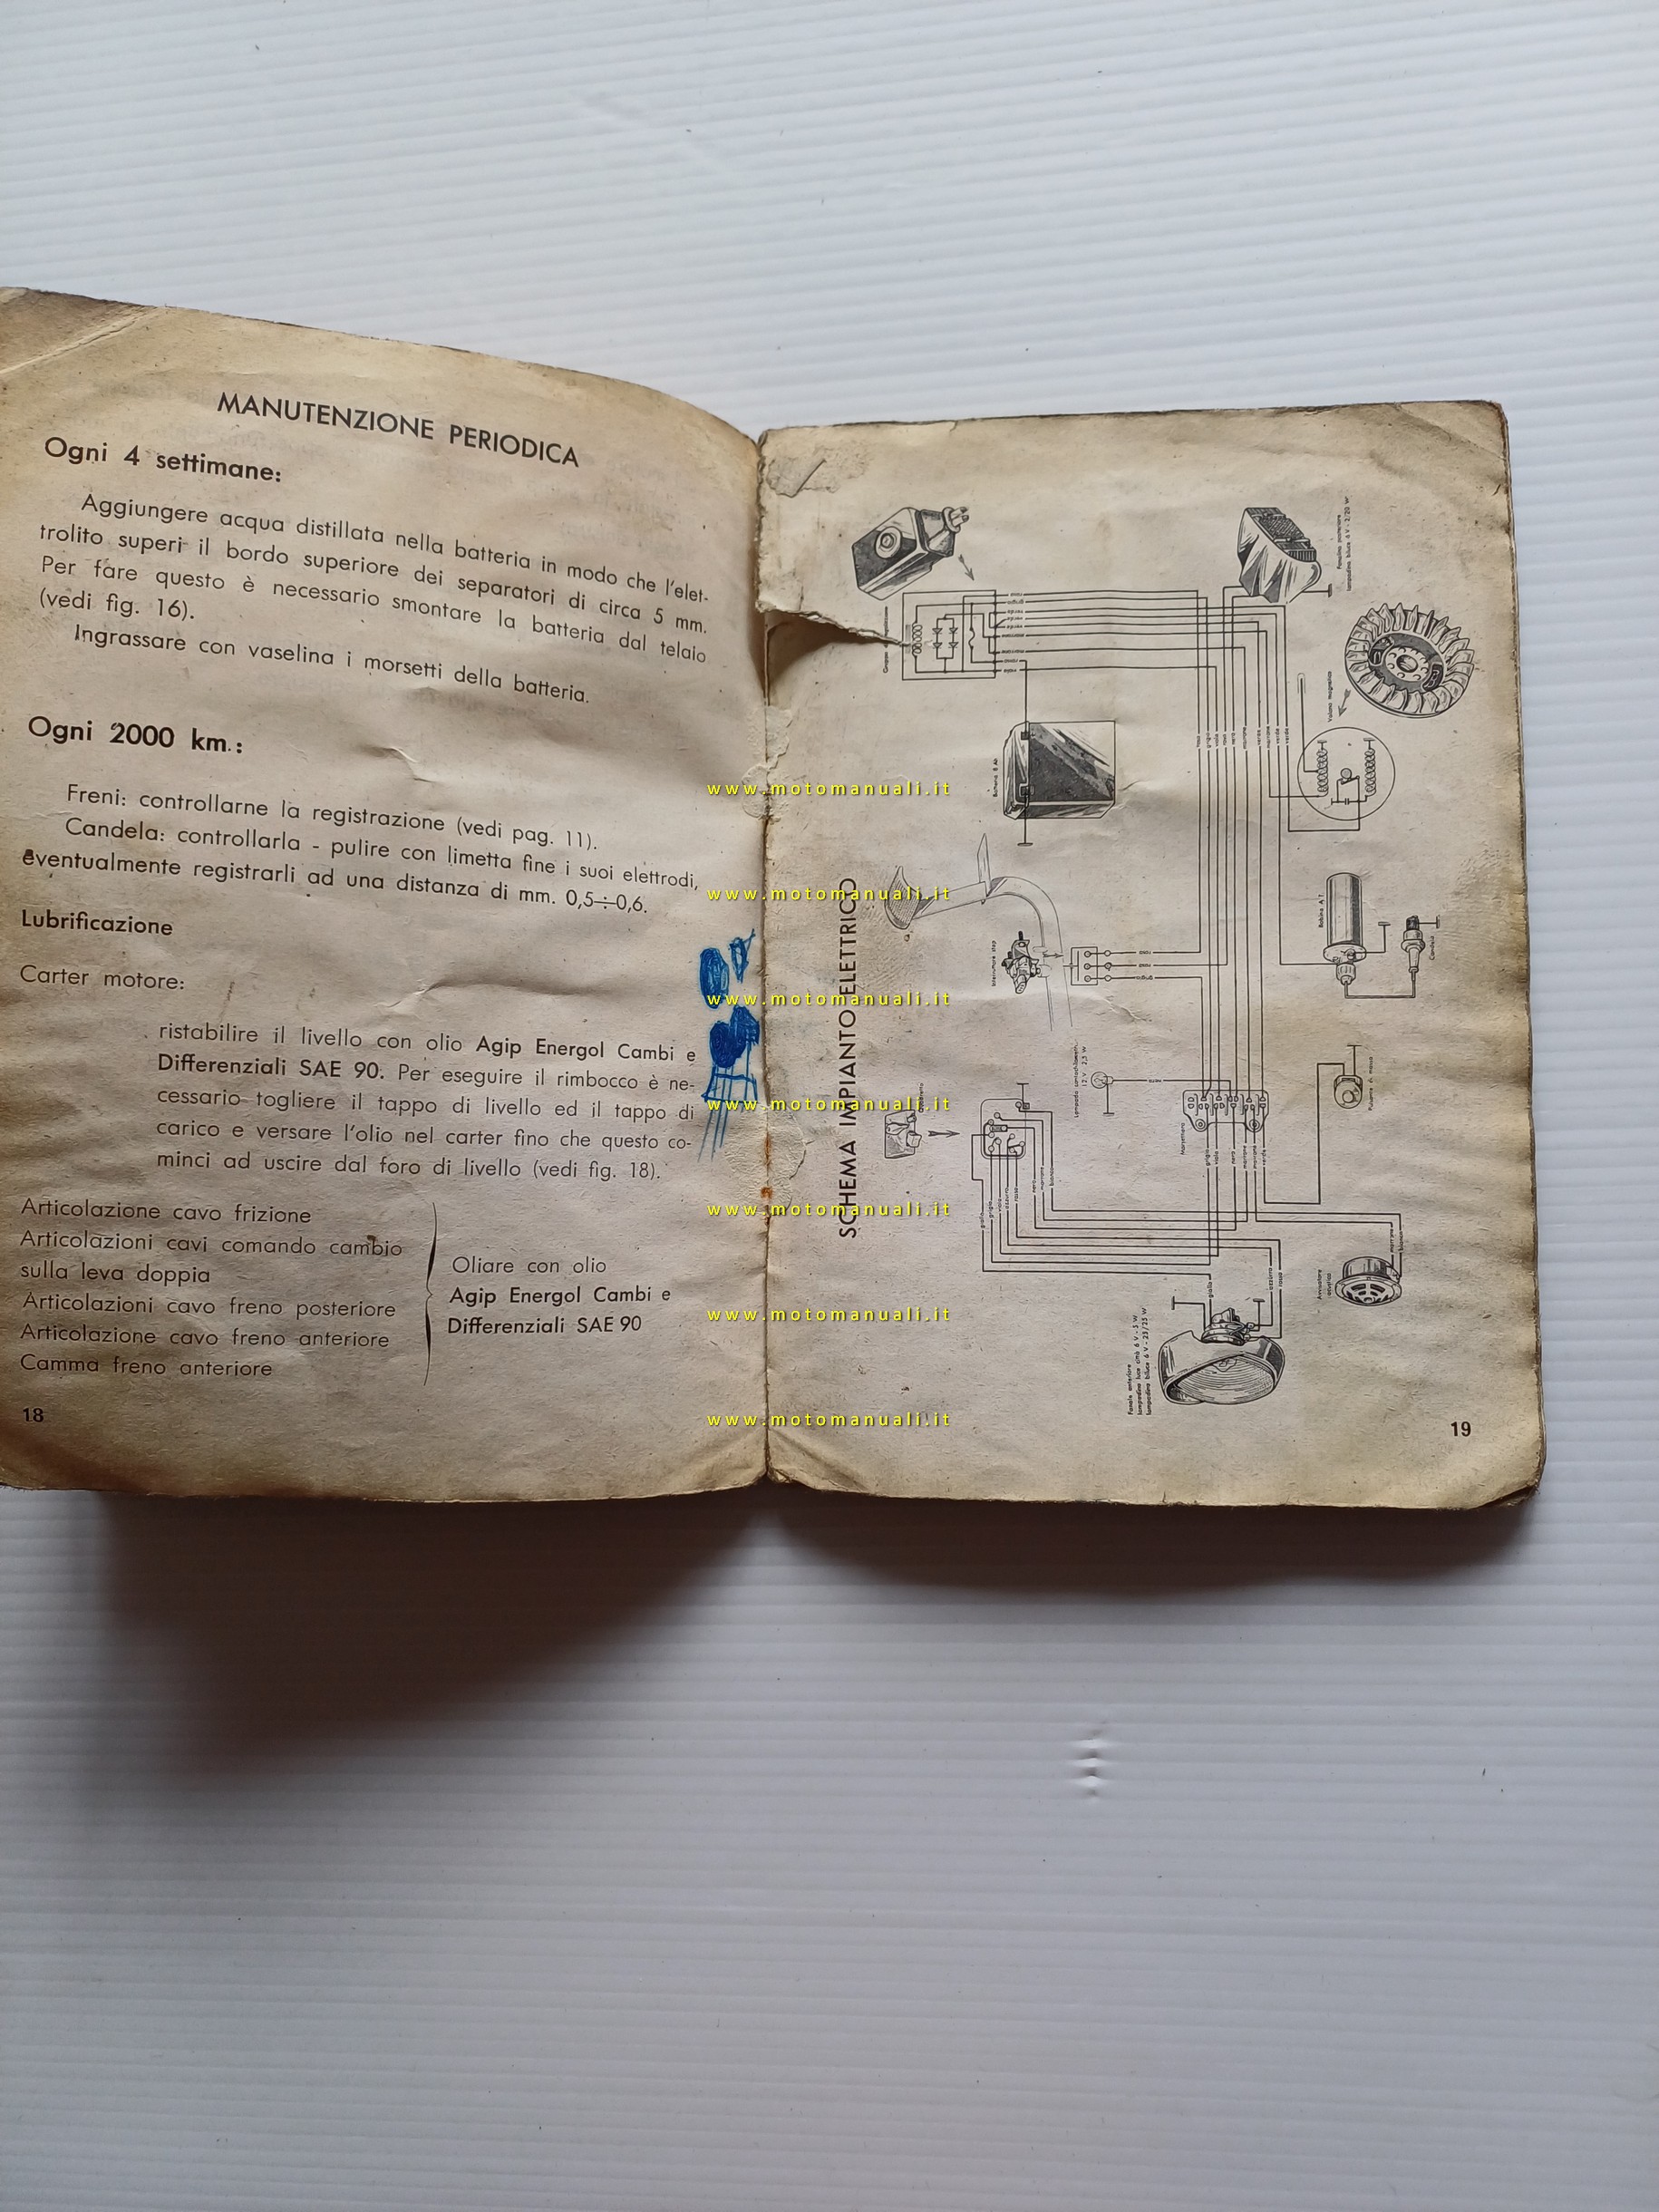 MANUTENZIONE PERIODICA
Ogni 4 settimane:
Aggiungere acqua distillata nella batteria in modo che l'elet-
trolito superi il bordo superiore dei separatori di circa 5 mm.
Per fare questo è necessario smontare la batteria dal telaio
(vedi fig. 16).
Ingrassare con vaselina i morsetti della batteria.
Ogni 2000 km.:
Freni: controllarne la registrazione (vedi pag. 11).
Candela: controllarla - pulire con limetta fine i suoi elettrodi,
eventualmente registrarli ad una distanza di mm. 0,5÷0,6.
Lubrificazione
Carter motore:
ristabilire il livello con olio Agip Energol Cambi e
Differenziali SAE 90. Per eseguire il rimbocco è ne-
cessario togliere il tappo di livello ed il tappo di
carico e versare l'olio nel carter fino che questo co-
minci ad uscire dal foro di livello (vedi fig. 18).
Articolazione cavo frizione
Articolazioni cavi comando cambio
sulla leva doppia
Articolazioni cavo freno posteriore
Articolazione cavo freno anteriore
Camma freno anteriore
Oliare con olio
Agip Energol Cambi e
Differenziali SAE 90
18
SCHEMA IMPIANTO ELETTRICO
Gruppo
Fanalino posteriore
lampadina biluce 6 V - 5/20 W
Volano magnete
Batteria 8 Ah
Interruttore stop
Bobina A.T.
Candela
Lampada contachilometri
12 V - 2,5 W
Morsettiera
Pulsante a massa
Avvisatore
acustico
Fanale anteriore
lampadina luce città 6 V - 5 W
lampadina biluce 6 V - 25/25 W
giallo
grigio
viola
azzurro
rosso
nero
marrone
bianco
grigio
viola
nero
marrone
marrone
verde
giallo
azzurro
rosso
marrone
bianco
19
www.motomanuali.it
www.motomanuali.it
www.motomanuali.it
www.motomanuali.it
www.motomanuali.it
www.motomanuali.it
www.motomanuali.it